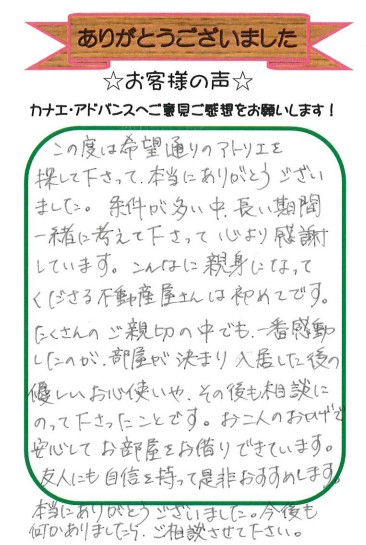 ありがとうございました
☆お客様の声☆
カナエ・アドバンスへご意見ご感想をお願いします！
この度は希望通りのアトリエを
探して下さって、本当にありがとうござい
ました。条件が多い中、長い期間
一緒に考えて下さって心より感謝
しています。こんなに親身になって
くださる不動産屋さんは初めてです。
たくさんのご親切の中でも、一番感動
したのが、部屋が決まり入居した後の
優しいお心使いや、その後も相談に
のって下さったことです。お二人のおかげで
安心してお部屋をお借りできています。
友人にも自信を持って是非おすすめします。
本当にありがとうございました。今後も
何かありましたら、ご相談させて下さい。